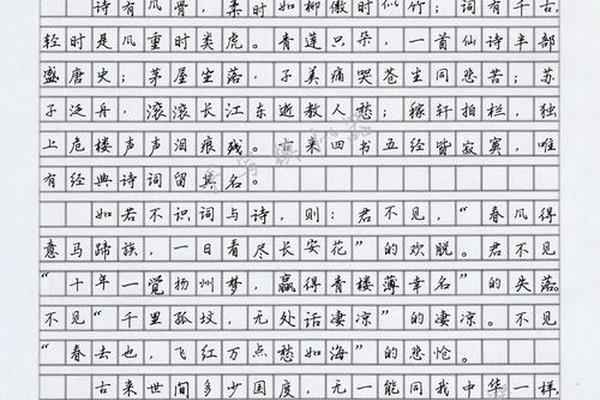 诗有风骨，柔时如柳傲时似竹；词有千古，
轻时是风重时类虎。青莲只朵，一首仙诗半部
盛唐史；茅屋坐落，子美痛哭苍生同悲苦；苏
子泛舟，滚滚长江东逝教人愁；稼轩拍栏，独
上危楼声声泪痕残。古来四书五经皆寂寞，唯
有经典诗词留其名。
如若不识词与诗，则：君不见，“春风得
意马蹄族，一日看尽长安花”的欢脱。君不见
“十年一觉扬州梦，赢得青楼薄幸名”的失落。
不见“千里孤坟，无处话凄凉”的凄凉。不见
“春去也，飞红万点愁如海”的悲怆。
古来世间多少国度，无一能同我中华一样，